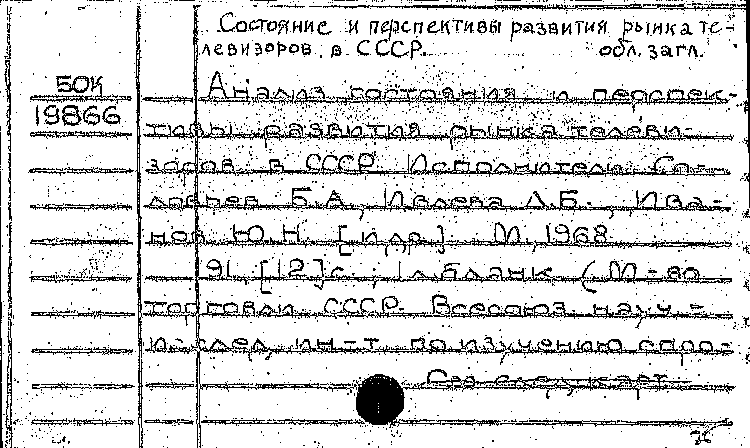 Состояние и перспективы развития рынка те-
левизоров в СССР. обл. загл.
50К
19866
Анализ состояния и перспек-
тивы развития рынка телеви-
зоров в СССР. Исполнители Со-
ловьев Б.А., Ивлева Л.Б., Ива-
нов Ю.Н. [и др.] М., 1968
91, [12] с.; 1 л. бланк (М-во
торговли СССР. Всесоюз. науч.-
и-след. ин-т по изучению спро-
См. след. карт.